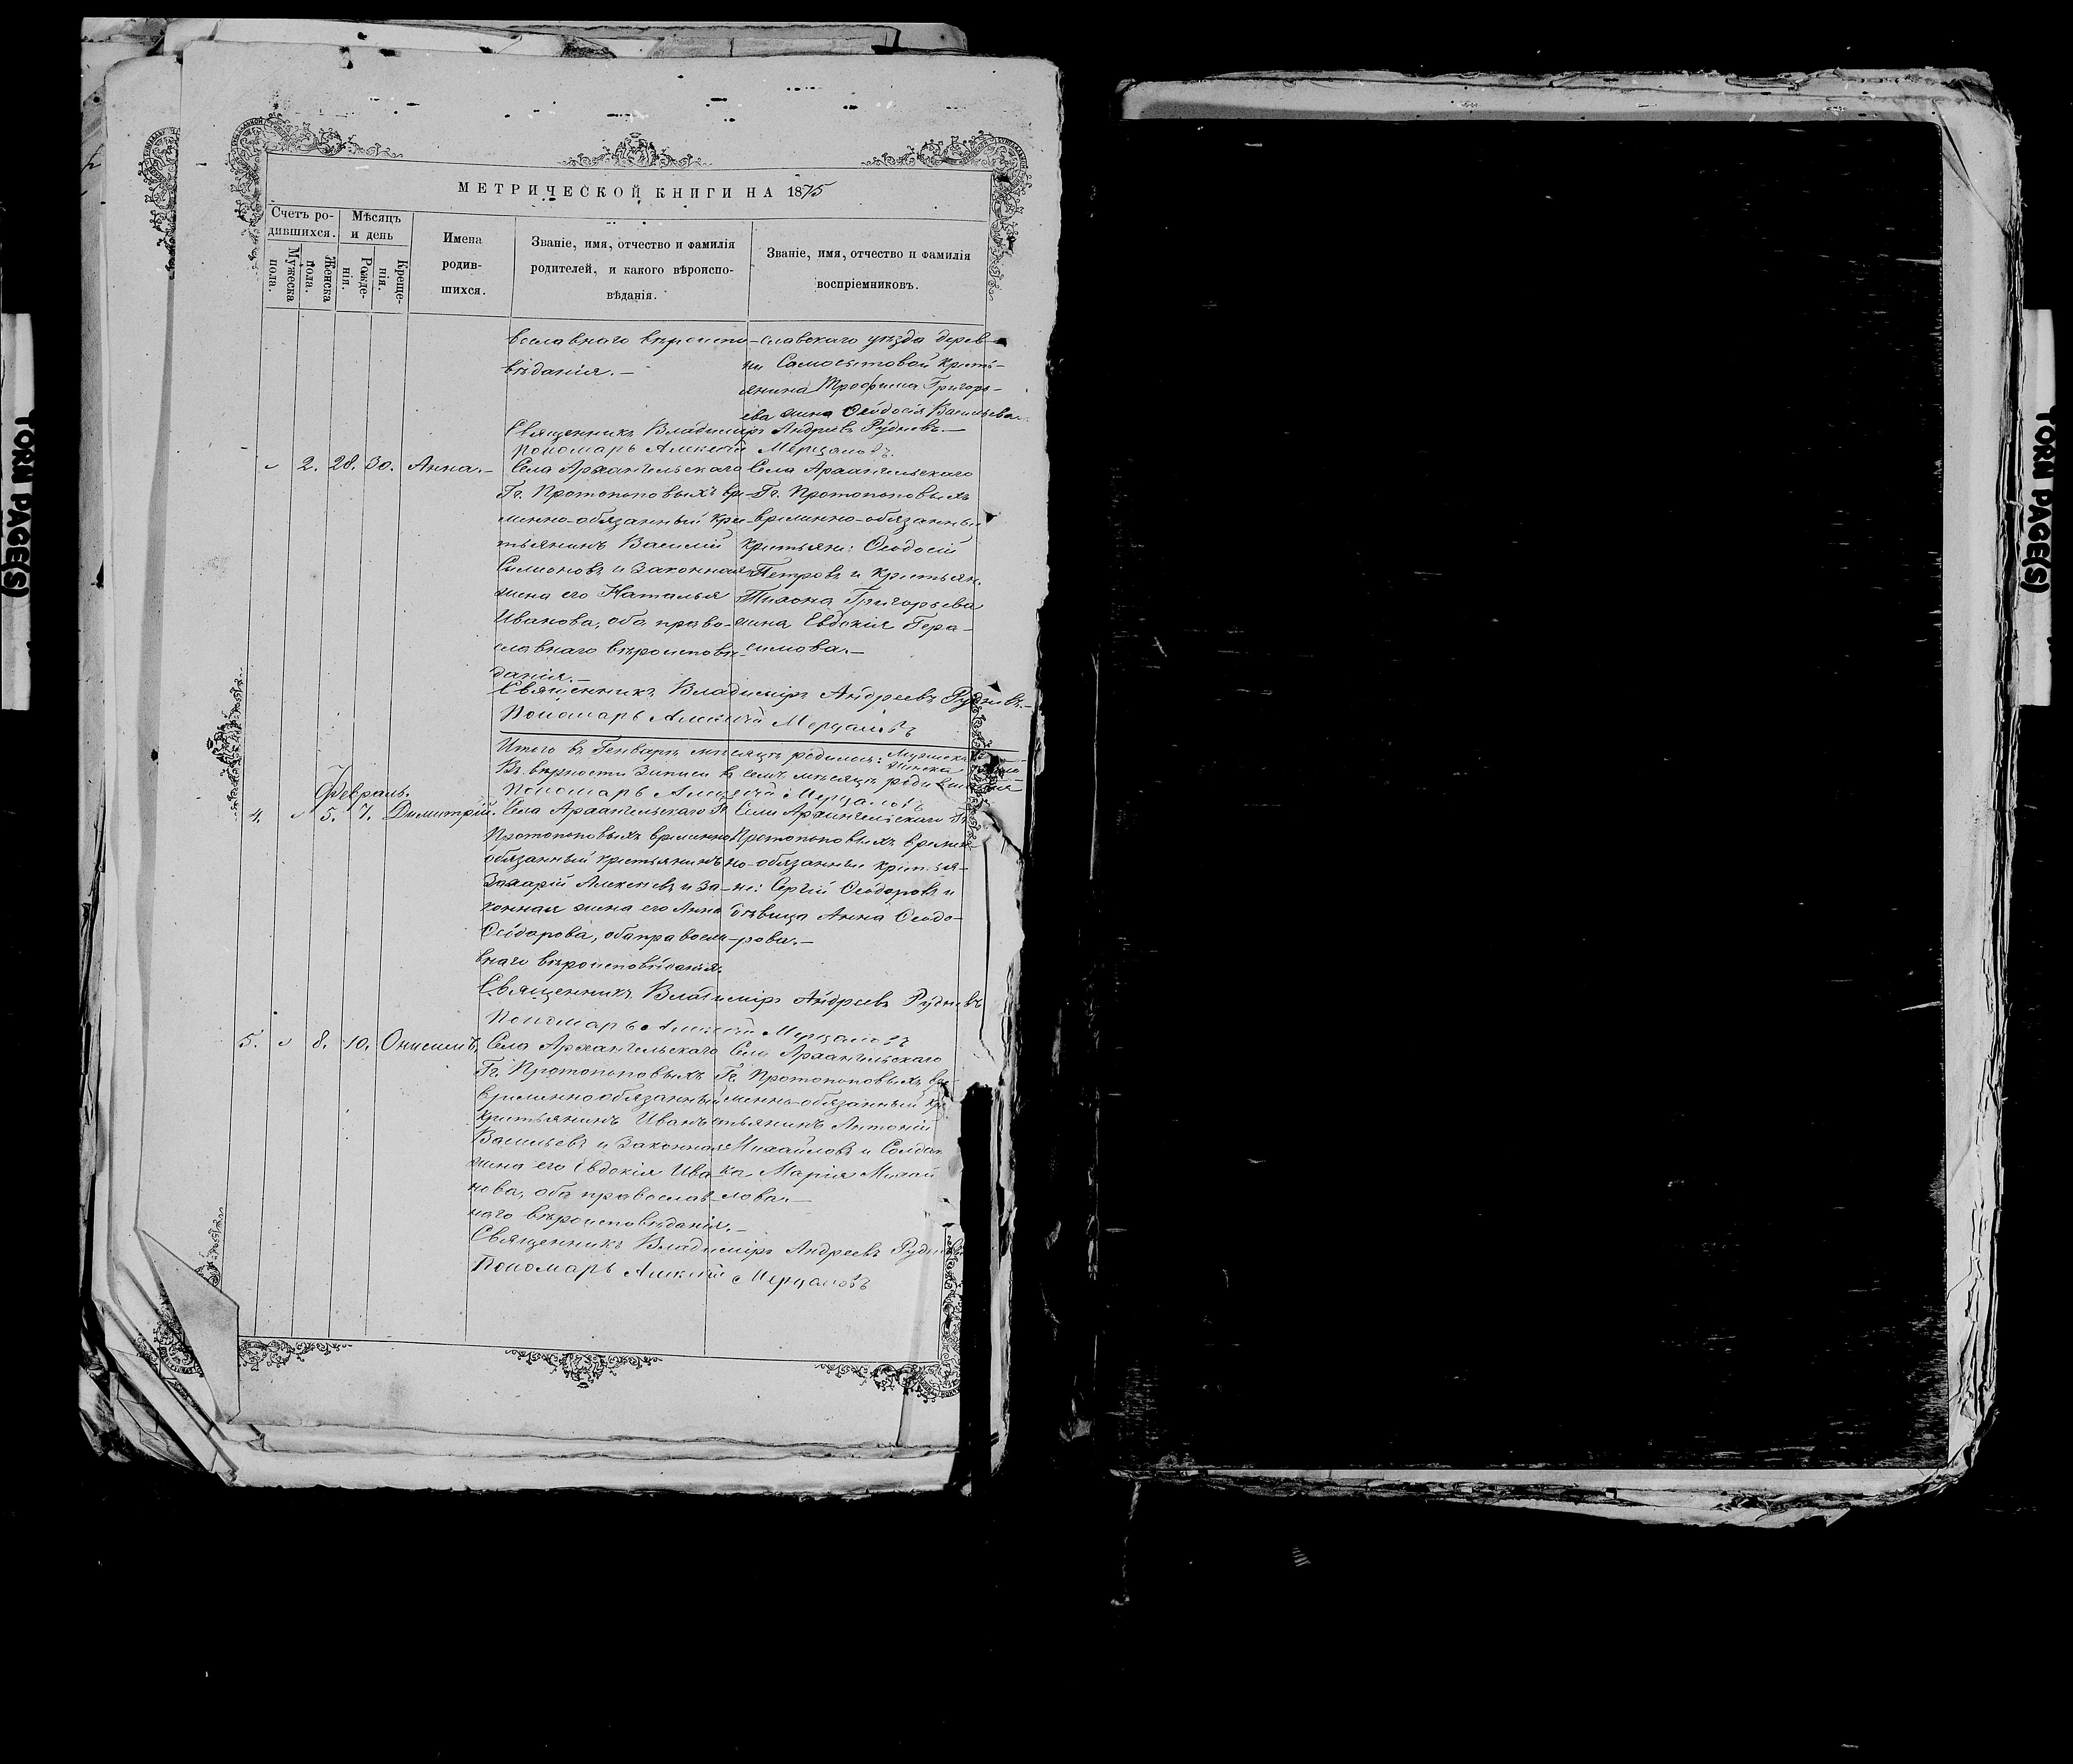 МЕТРИЧЕСКОЙ КНИГИ НА 1875
Счетъ ро-
дившихся.
Мѣсяцъ
и день
Мужеска
пола.
Женска
пола.
Рожде-
нія.
Креще-
нія.
Имена
родив-
шихся.
Званіе, имя, отчество и фамилія
родителей, и какого вѣроиспо-
вѣданія.
Званіе, имя, отчество и фамилія
воспріемниковъ.
вославнаго вѣроиспо-
вѣданія.-
славскаго уѣзда дерев-
ни Самосытовой кресть-
янина Трофима Григорь-
ева жина Ѳеодосія Васильева.
Священникъ Владиміръ Андреевъ Рудневъ.-
Пономарь Алексій Мерцаловъ.
2. 28. 30. Анна.-
Села Архангельскаго
Гг. Протопоповыхъ вре-
менно-обязанный кре-
стьянинъ Василій
Симионовъ и законная
жена его Наталья
Иванова, оба право-
славнаго вѣроисповѣ-
данія.-
Села Архангельскаго
Гг. Протопоповыхъ
временно-обязанные
крестьяне: Ѳеодосій
Петровъ и крестьян.
Тихона Григорьева
жина Евдокія Гера-
симова.-
Священникъ Владиміръ Андреевъ Рудневъ.-
Пономарь Алексій Мерцаловъ
Итого въ Генварѣ мѣсяцѣ родилось: Мужеска
Женска
Въ вѣрности записи въ семъ мѣсяцѣ
Пономарь Алексій Мерцаловъ
Февраль.
4. 5. 7. Димитрій.
Села Архангельскаго Гг.
Протопоповыхъ временно
обязанный крестьянинъ
Захарій Алексѣевъ и за-
конная жена его Анна
Ѳеодорова, оба правосла-
внаго вѣроисповѣданія.
Села Архангельскаго Гг.
Протопоповыхъ времен
но-обязанные крестья-
не: Сергій Ѳеодоровъ и
дѣвица Анна Ѳеодо-
рова.-
Священникъ Владиміръ Андреевъ Рудневъ
Пономарь Алексій Мерцаловъ
5. 8. 10. Онисимъ.
Села Архангельскаго
Гг. Протопоповыхъ
временно обязанный
крестьянинъ Иванъ
Васильевъ и законная
жина его Евдокія Ива
нова, оба православ-
наго вѣроисповѣданія.-
Села Архангельскаго
Гг. Протопоповыхъ вре-
менно-обязанный кре
стьянинъ Антоній
Михайловъ и Солдат
ка Марія Михай
лова.-
Священникъ Владиміръ Андреевъ Рудневъ
Пономарь Алексій Мерцаловъ
TORN PAGE(S)
TORN PAGE(S)